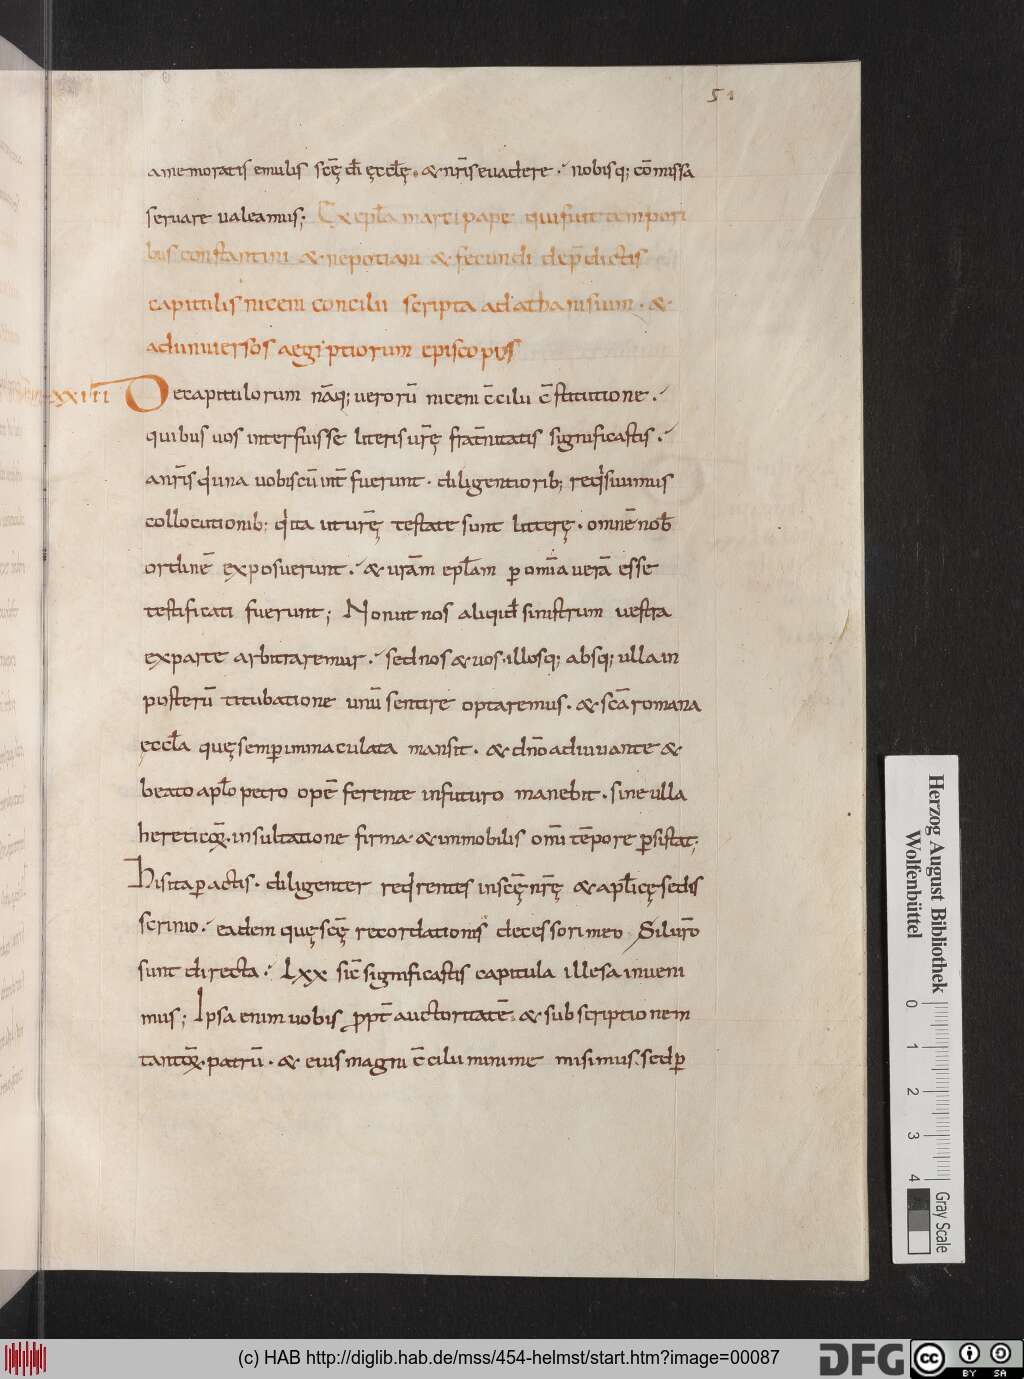 51
a memoratis emulis scę̄ dī ęccłę. & nr̄is euadere. nobisq; cōmissa
seruare ualeamus; Ex epła marci pape qui fuit tempori
bus constantini & nepotiani & secundi de p̄dictis
capitulis niceni concilii scripta ad athanisium. &
ad uniuersos aegiptiorum episcopus
XXIII De capitulorum nāq; uerorū niceni c̄cilii c̄stitutione.
quibus uos interfuisse literis urę̄ frat̄nitatis significastis.
a nr̄is qui una uobiscū int̄ fuerunt. diligentiorib; reqisiuimus
collocutionib; q ita ut urę̄ testate sunt litterę. omnē nob̄
ordinē exposuerunt. & urām epłam p omīa uerā esse
testificati fuerunt; Non ut nos aliqid sinistrum uestra
ex parte arbitraremur. sed nos & uos. illosq; absq; ulla in
posterū titubatione unū sentire optaremus. & scā romana
ęccła quę semp inmaculata mansit. & dn̄o adiuuante &
beato apło petro opē ferente in futuro manebit. sine ulla
hereticoꝝ. insultatione firma. & inmobilis omī tēpore psistat;
His ita pactis. diligenter reqrentes in scę̄ nrę̄ & aplicę sedis
scrinio. eadem quę scę̄ recordationis decessori meo Siluro
sunt directa. Lxx sic̄ significastis capitula illesa inueni
mus; Ipsa enim uobis ꝓpt̄ auctoritatē. & subscriptionem
tantoꝝ. patrū. & eius magni c̄cilii minime misimus. sed p
Herzog August Bibliothek
Wolfenbüttel
0 1 2 3 4
Gray Scale
(c) HAB http://diglib.hab.de/mss/454-helmst/start.htm?image=00087
DFG
cc BY SA